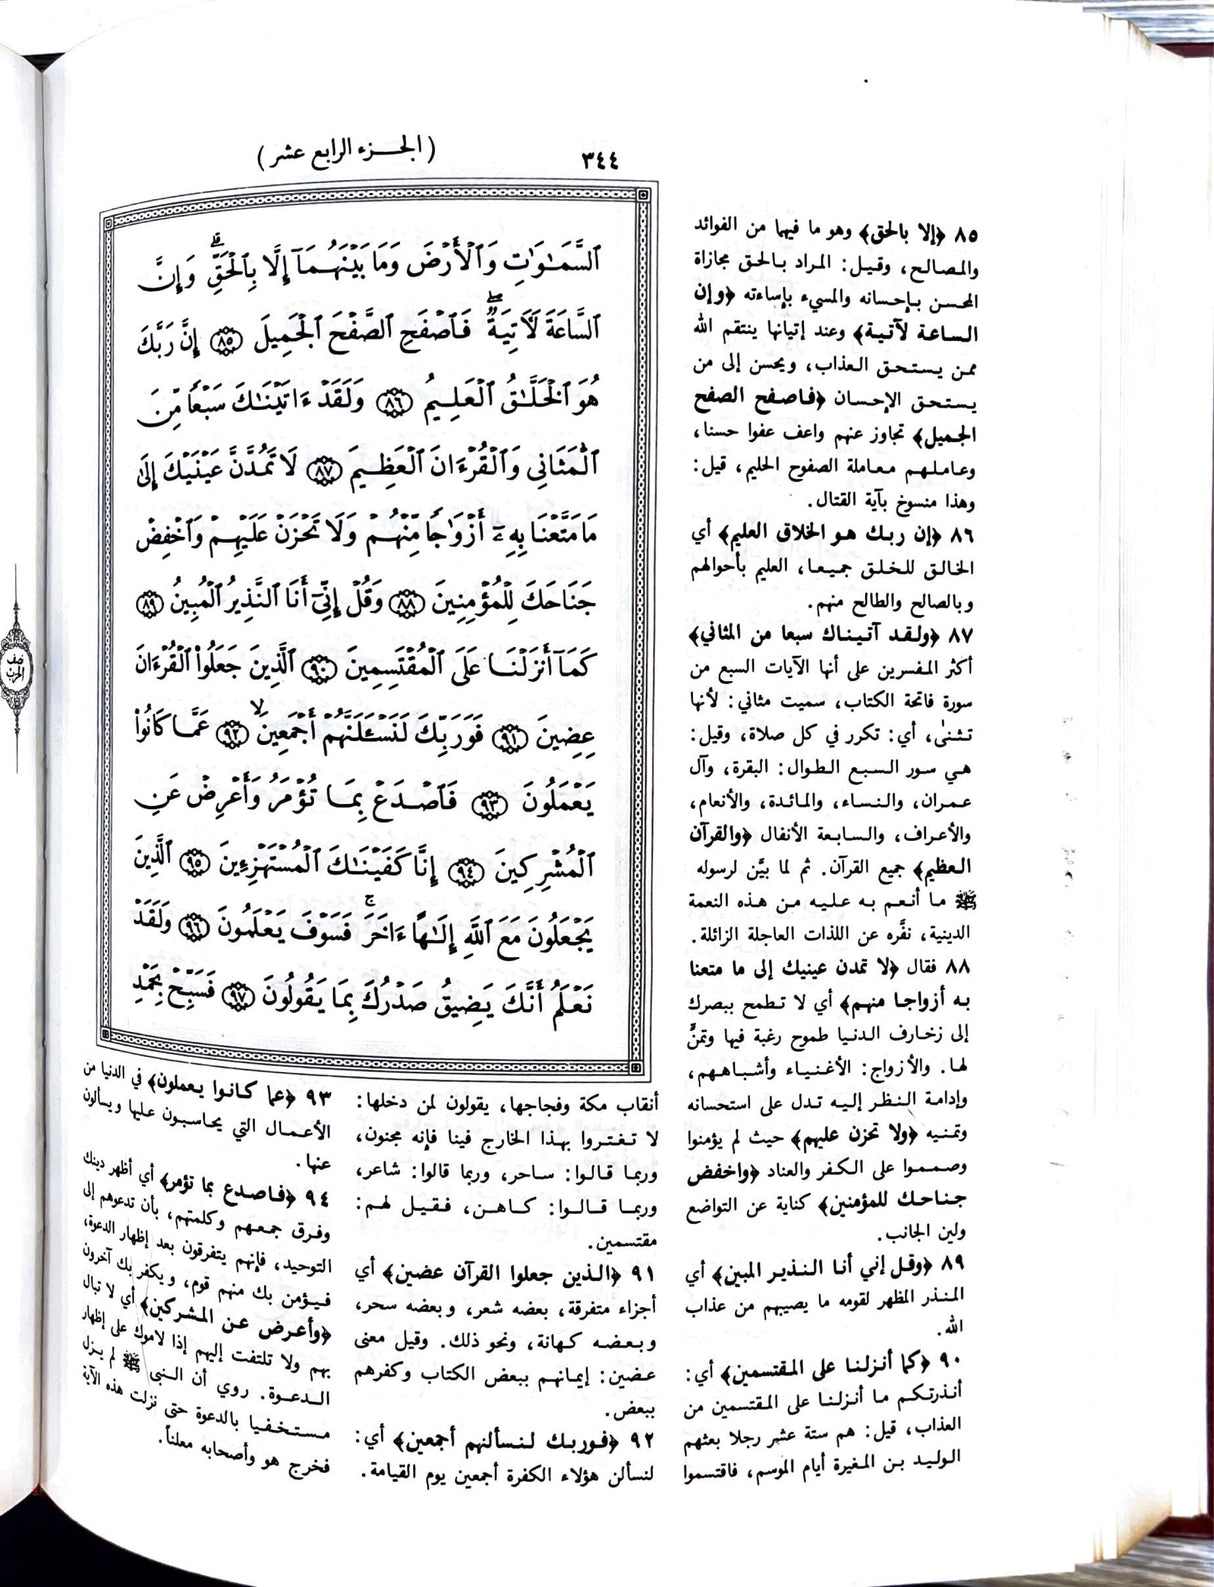 ٣٤٤
(الجـزء الرابع عشر)
ٱلسَّمَـٰوَٰتِ وَٱلْأَرْضَ وَمَا بَيْنَهُمَآ إِلَّا بِٱلْحَقِّۗ وَإِنَّ
ٱلسَّاعَةَ لَآتِيَةٌۖ فَٱصْفَحِ ٱلصَّفْحَ ٱلْجَمِيلَ ٨٥ إِنَّ رَبَّكَ
هُوَ ٱلْخَلَّـٰقُ ٱلْعَلِيمُ ٨٦ وَلَقَدْ ءَاتَيْنَـٰكَ سَبْعًا مِّنَ
ٱلْمَثَانِى وَٱلْقُرْءَانَ ٱلْعَظِيمَ ٨٧ لَا تَمُدَّنَّ عَيْنَيْكَ إِلَىٰ
مَا مَتَّعْنَا بِهِۦٓ أَزْوَٰجًا مِّنْهُمْ وَلَا تَحْزَنْ عَلَيْهِمْ وَٱخْفِضْ
جَنَاحَكَ لِلْمُؤْمِنِينَ ٨٨ وَقُلْ إِنِّىٓ أَنَا ٱلنَّذِيرُ ٱلْمُبِينُ ٨٩
كَمَآ أَنزَلْنَا عَلَى ٱلْمُقْتَسِمِينَ ٩٠ ٱلَّذِينَ جَعَلُوا۟ ٱلْقُرْءَانَ
عِضِينَ ٩١ فَوَرَبِّكَ لَنَسْـَٔلَنَّهُمْ أَجْمَعِينَۙ ٩٢ عَمَّا كَانُوا۟
يَعْمَلُونَ ٩٣ فَٱصْدَعْ بِمَا تُؤْمَرُ وَأَعْرِضْ عَنِ
ٱلْمُشْرِكِينَ ٩٤ إِنَّا كَفَيْنَـٰكَ ٱلْمُسْتَهْزِءِينَ ٩٥ ٱلَّذِينَ
يَجْعَلُونَ مَعَ ٱللَّهِ إِلَـٰهًا ءَاخَرَۚ فَسَوْفَ يَعْلَمُونَ ٩٦ وَلَقَدْ
نَعْلَمُ أَنَّكَ يَضِيقُ صَدْرُكَ بِمَا يَقُولُونَ ٩٧ فَسَبِّحْ بِحَمْدِ
نصف
الحزب
٨٥ ﴿إلا بالحق﴾ وهو ما فيهما من الفوائد
والمصالح، وقيل: المراد بالحق مجازاة
المحسن بإحسانه والمسيء بإساءته ﴿وإن
الساعة لآتية﴾ وعند إتيانها ينتقم الله
ممن يستحق العذاب، ويحسن إلى من
يستحق الإحسان ﴿فاصفح الصفح
الجميل﴾ تجاوز عنهم واعف عفوا حسنا،
وعاملهم معاملة الصفوح الحليم، قيل:
وهذا منسوخ بآية القتال.
٨٦ ﴿إن ربك هو الخلاق العليم﴾ أي
الخالق للخلق جميعا، العليم بأحوالهم
وبالصالح والطالح منهم.
٨٧ ﴿ولقد آتيناك سبعا من المثاني﴾
أكثر المفسرين على أنها الآيات السبع من
سورة فاتحة الكتاب، سميت مثاني: لأنها
تثنىٰ، أي: تكرر في كل صلاة، وقيل:
هي سور السبع الطوال: البقرة، وآل
عمران، والنساء، والمائدة، والأنعام،
والأعراف، والسابعة الأنفال ﴿والقرآن
العظيم﴾ جميع القرآن. ثم لما بيَّن لرسوله
ﷺ ما أنعم به عليه من هذه النعمة
الدينية، نفَّره عن اللذات العاجلة الزائلة.
٨٨ فقال ﴿لا تمدن عينيك إلى ما متعنا
به أزواجا منهم﴾ أي لا تطمح ببصرك
إلى زخارف الدنيا طموح رغبة فيها وتمنٍّ
لها. والأزواج: الأغنياء وأشباههم،
وإدامة النظر إليه تدل على استحسانه
وتمنيه ﴿ولا تحزن عليهم﴾ حيث لم يؤمنوا
وصمموا على الكفر والعناد ﴿واخفض
جناحك للمؤمنين﴾ كناية عن التواضع
ولين الجانب.
٨٩ ﴿وقل إني أنا النذير المبين﴾ أي
المنذر المظهر لقومه ما يصيبهم من عذاب
الله.
٩٠ ﴿كما أنزلنا على المقتسمين﴾ أي:
أنذرتكم ما أنزلنا على المقتسمين من
العذاب، قيل: هم ستة عشر رجلا بعثهم
الوليد بن المغيرة أيام الموسم، فاقتسموا
أنقاب مكة وفجاجها، يقولون لمن دخلها:
لا تغتروا بهذا الخارج فينا فإنه مجنون،
وربما قالوا: ساحر، وربما قالوا: شاعر،
وربما قالوا: كاهن، فقيل لهم:
مقتسمين.
٩١ ﴿الذين جعلوا القرآن عضين﴾ أي
أجزاء متفرقة، بعضه شعر، وبعضه سحر،
وبعضه كهانة، ونحو ذلك. وقيل معنى
عضين: إيمانهم ببعض الكتاب وكفرهم
ببعض.
٩٢ ﴿فوربك لنسألنهم أجمعين﴾ أي:
لنسألن هؤلاء الكفرة أجمعين يوم القيامة.
٩٣ ﴿عما كانوا يعملون﴾ في الدنيا من
الأعمال التي يحاسبون عليها ويسألون
عنها.
٩٤ ﴿فاصدع بما تؤمر﴾ أي أظهر دينك
وفرق جمعهم وكلمتهم، بأن تدعوهم إلى
التوحيد، فإنهم يتفرقون بعد إظهار الدعوة،
فيؤمن بك منهم قوم، ويكفر بك آخرون
﴿وأعرض عن المشركين﴾ أي لا تبال
بهم ولا تلتفت إليهم إذا لاموك على إظهار
الدعوة. روي أن النبي ﷺ لم يزل
مستخفيا بالدعوة حتى نزلت هذه الآية
فخرج هو وأصحابه معلناً.